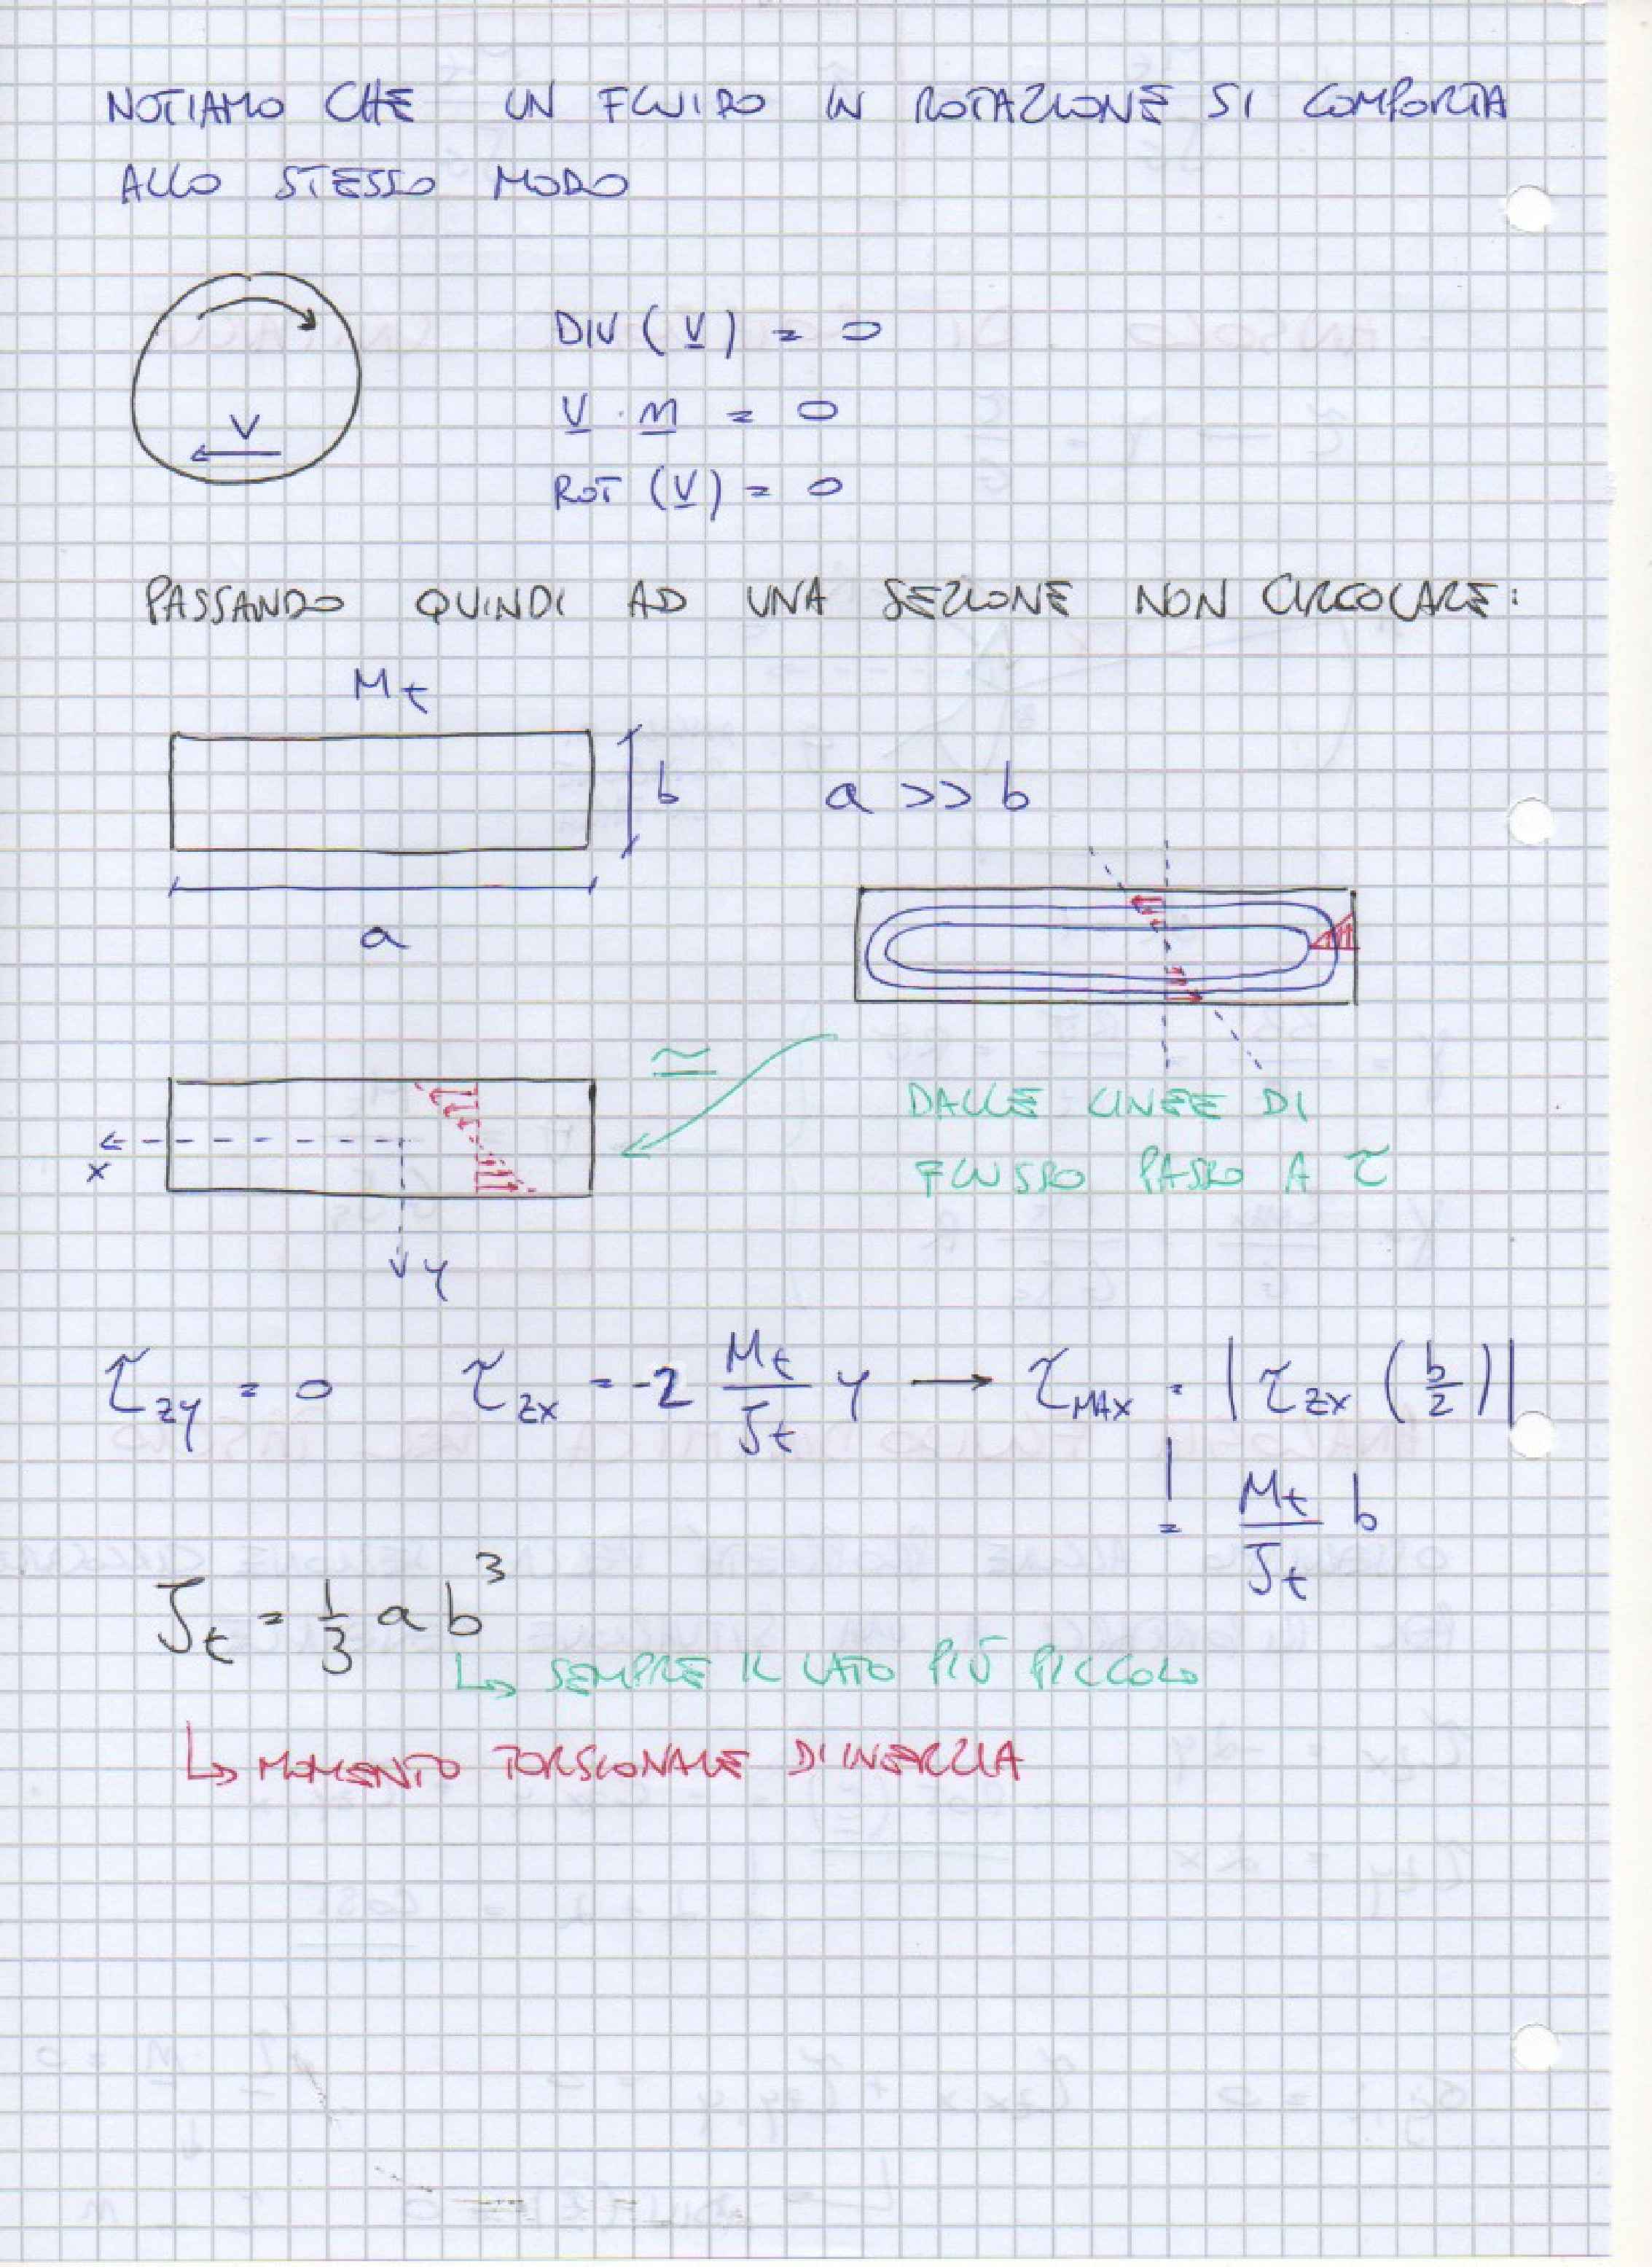 NOTIAMO CHE UN FLUIDO IN ROTAZIONE SI COMPORTA
ALLO STESSO MODO
DIV (V) = 0
V · n = 0
V
ROT (V) = 0
PASSANDO QUINDI AD UNA SEZIONE NON CIRCOLARE:
Mt
b
a >> b
a
≃
DALLE LINEE DI
FLUSSO PASSO A τ
x
y
τzy = 0 τzx = -2 Mt/Jt y → τMAX = |τzx (b/2)|
= Mt/Jt b
Jt = 1/3 a b³
↳ SEMPRE IL LATO PIÙ PICCOLO
↳ MOMENTO TORSIONALE D'INERZIA